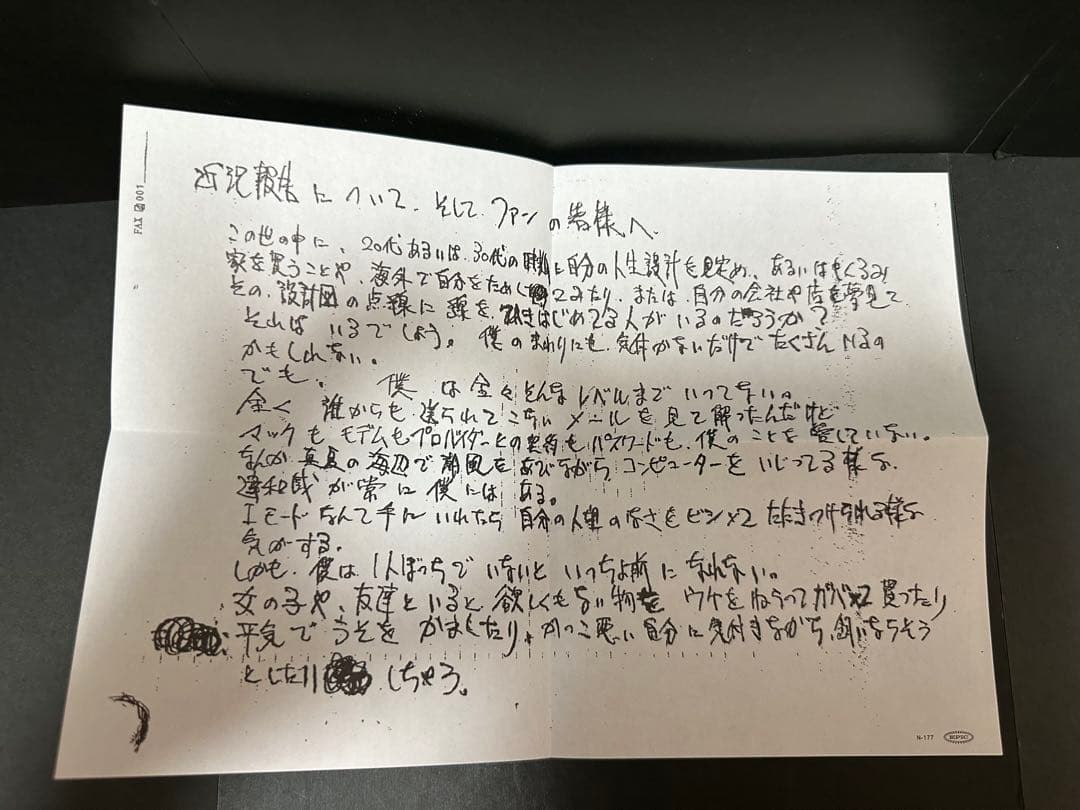 FAX 001
近況報告について、そして、ファンの皆様へ
この世の中に、20代あるいは、30代の時に自分の人生設計を見定め、あるいはもくろみ
家を買うことや、海外で自分をためしてみたり、または、自分の会社や店を夢見て
その、設計図の点線に線を、ひきはじめてる人がいるのだろうか?
それは いるでしょう。僕のまわりにも、気付かないだけでたくさんいるの
かもしれない。
でも、 僕は全々そんなレベルまでいってない。
全く 誰からも送られてこないメールを見て解ったんだけど
マックもモデムもプロバイダーとの契約もパスワードも、僕のことを愛していない。
なんか真夏の海辺で潮風をあびながらコンピューターをいじってる様な
違和感が常に僕にはある。
Iモードなんて手にいれたら自分の人望のなさをビシッとたたきつけられる様な
気がする。
しかも、僕は1人ぼっちでいないといっちょ前になれない。
女の子や、友達といると、欲しくもない物をウケをねらってガバッと買ったり
平気でうそをかましたり、かっこ悪い自分に気付きながら、飼いならそう
としたり しちゃう。
N-177 EPIC